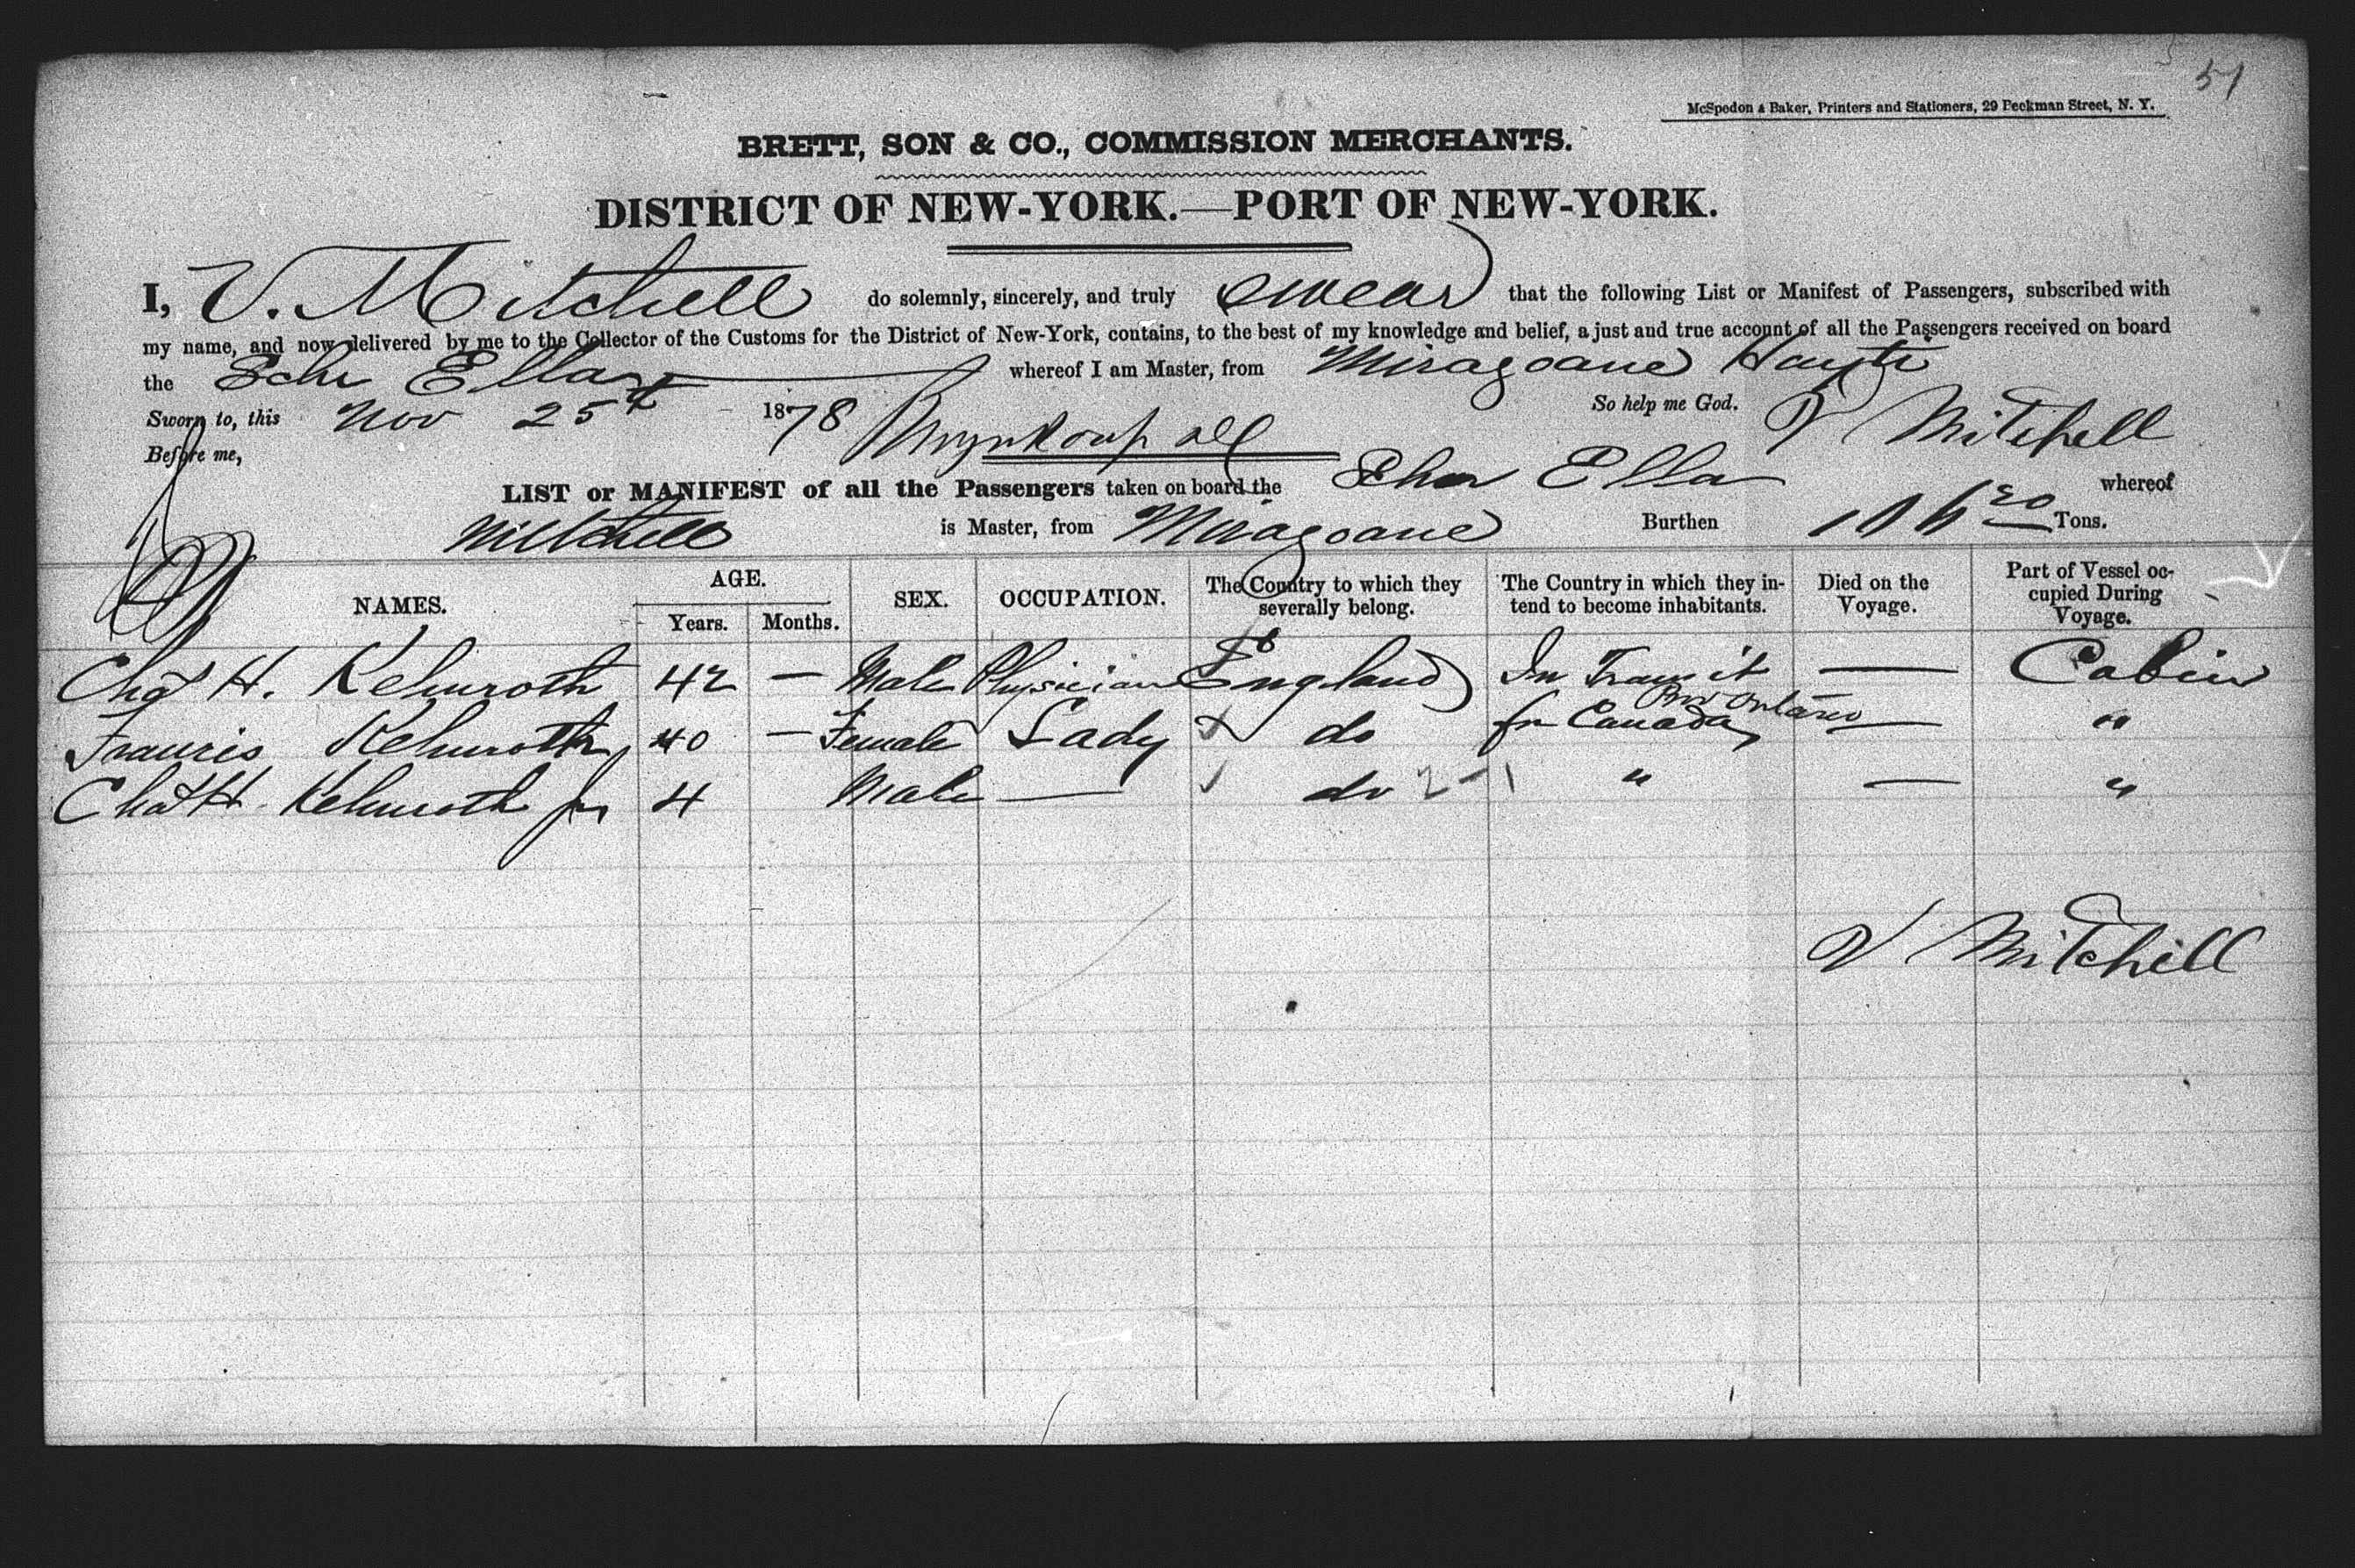 51
McSpedon & Baker, Printers and Stationers, 29 Beekman Street, N. Y.
BRETT, SON & CO., COMMISSION MERCHANTS.
DISTRICT OF NEW-YORK.—PORT OF NEW-YORK.
I, V. Mitchell do solemnly, sincerely, and truly swear that the following List or Manifest of Passengers, subscribed with
my name, and now delivered by me to the Collector of the Customs for the District of New-York, contains, to the best of my knowledge and belief, a just and true account of all the Passengers received on board
the Schr Ella whereof I am Master, from Miragoane Hayti
Sworn to, this Nov 25th 1878 So help me God. V Mitchell
Before me,
LIST or MANIFEST of all the Passengers taken on board the Schr Ella whereof
Mitchell is Master, from Miragoane Burthen 106 20 Tons.
NAMES. AGE. Years. Months. SEX. OCCUPATION. The Country to which they severally belong. The Country in which they intend to become inhabitants. Died on the Voyage. Part of Vessel occupied During Voyage.
Chas H. Kehnroth 42 — Male Physician England In Transit — Cabin
Francis Kehnroth 40 — Female Lady do for Canada Ontario — "
Chas H. Kehnroth jr 4 Male — do 2-1 " — "
V Mitchell